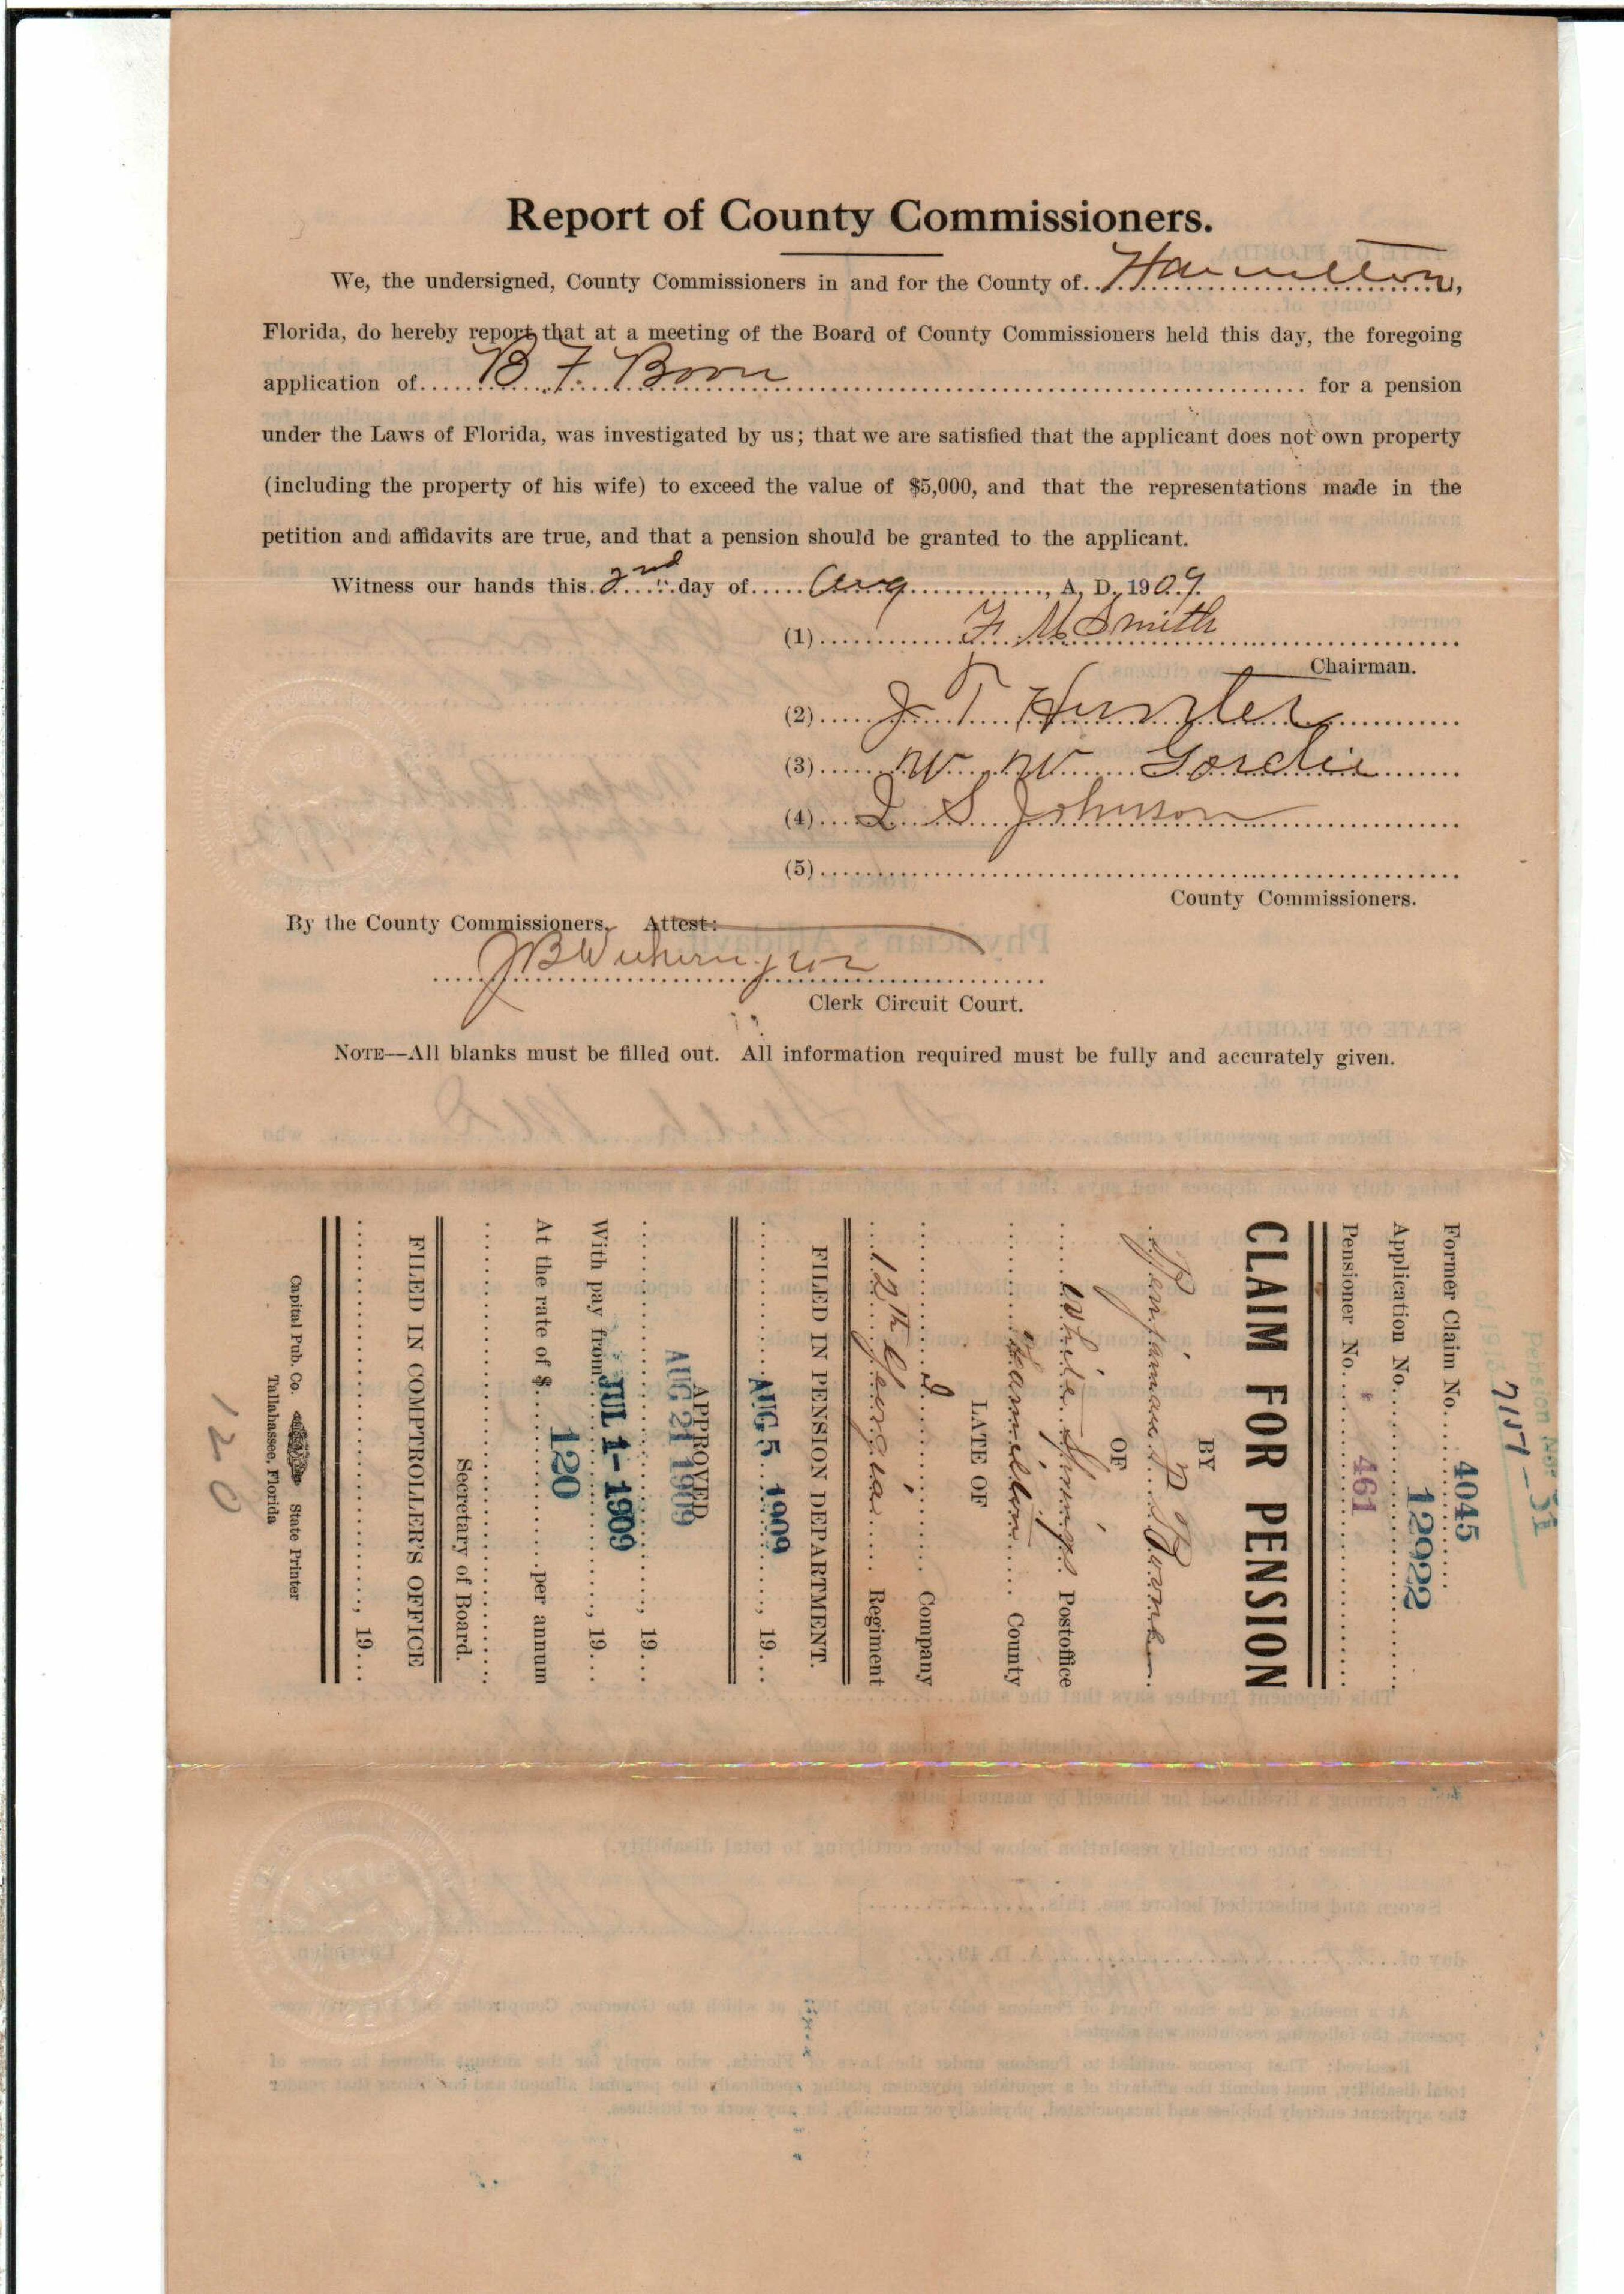 Report of County Commissioners.
We, the undersigned, County Commissioners in and for the County of Hamilton,
Florida, do hereby report that at a meeting of the Board of County Commissioners held this day, the foregoing
application of B. F. Boon for a pension
under the Laws of Florida, was investigated by us; that we are satisfied that the applicant does not own property
(including the property of his wife) to exceed the value of $5,000, and that the representations made in the
petition and affidavits are true, and that a pension should be granted to the applicant.
Witness our hands this 2nd day of Aug, A. D. 1909.
(1) F. M. Smith
Chairman.
(2) J. T. Hunter
(3) W W
(4) S Johnson
(5)
County Commissioners.
By the County Commissioners, Attest:
J B Witherington
Clerk Circuit Court.
NOTE—All blanks must be filled out. All information required must be fully and accurately given.
Former Claim No. 4045
Application No. 12922
Pensioner No. 461
CLAIM FOR PENSION
BY
Benjamin
OF
White Springs Postoffice
Hamilton County
LATE OF
Company
12th Georgia Regiment
FILED IN PENSION DEPARTMENT.
AUG 5 1909, 19
APPROVED
AUG 21 1909
, 19
With pay from JUL 1-1909, 19
At the rate of $ 120 per annum
Secretary of Board.
FILED IN COMPTROLLER'S OFFICE
, 19
Capital Pub. Co. State Printer
Tallahassee, Florida
120